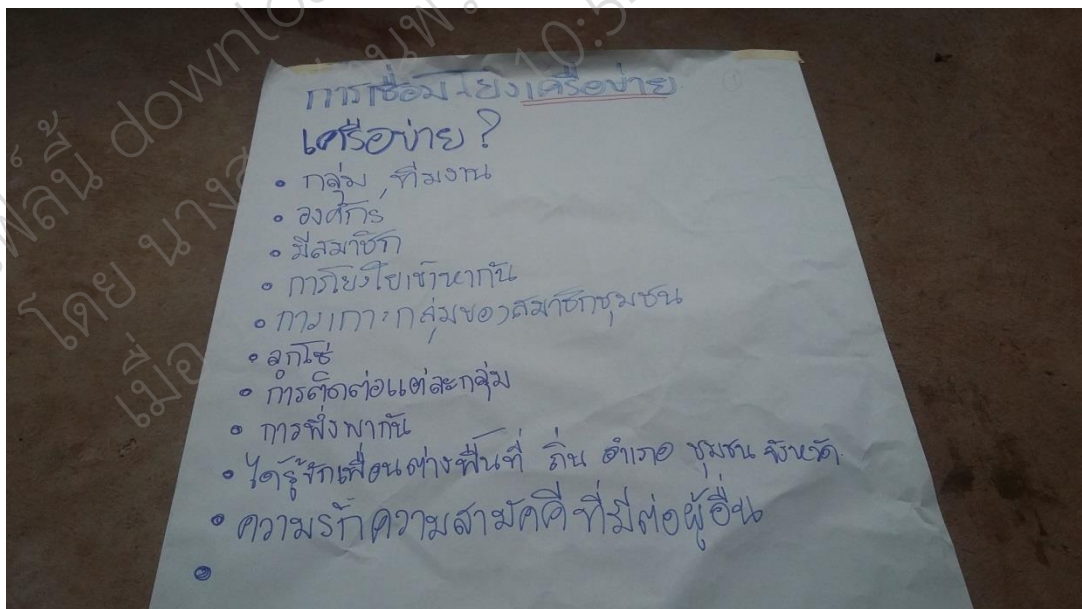 การเชื่อมโยงเครือข่าย
เครือข่าย ?
• กลุ่ม, ทีมงาน
• องค์กร
• มีสมาชิก
• การโยงใยเข้าหากัน
• การเกาะกลุ่มของสมาชิกชุมชน
• ลูกโซ่
• การติดต่อแต่ละกลุ่ม
• การพึ่งพากัน
• ได้รู้จักเพื่อนต่างพื้นที่ ถิ่น อำเภอ ชุมชน จังหวัด
• ความรักความสามัคคีที่มีต่อผู้อื่น
•
ไฟล์นี้ downlo
โดย นางส
เมื่อ
10:5